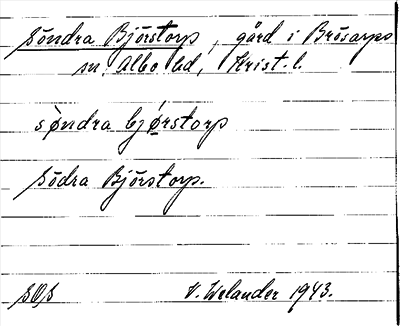 Söndra Björstorp, gård i Brösarps
sn. Albo hd, Krist. l.
søndra bjørstorp
Södra Björstorp.
SOS V. Welander 1943.